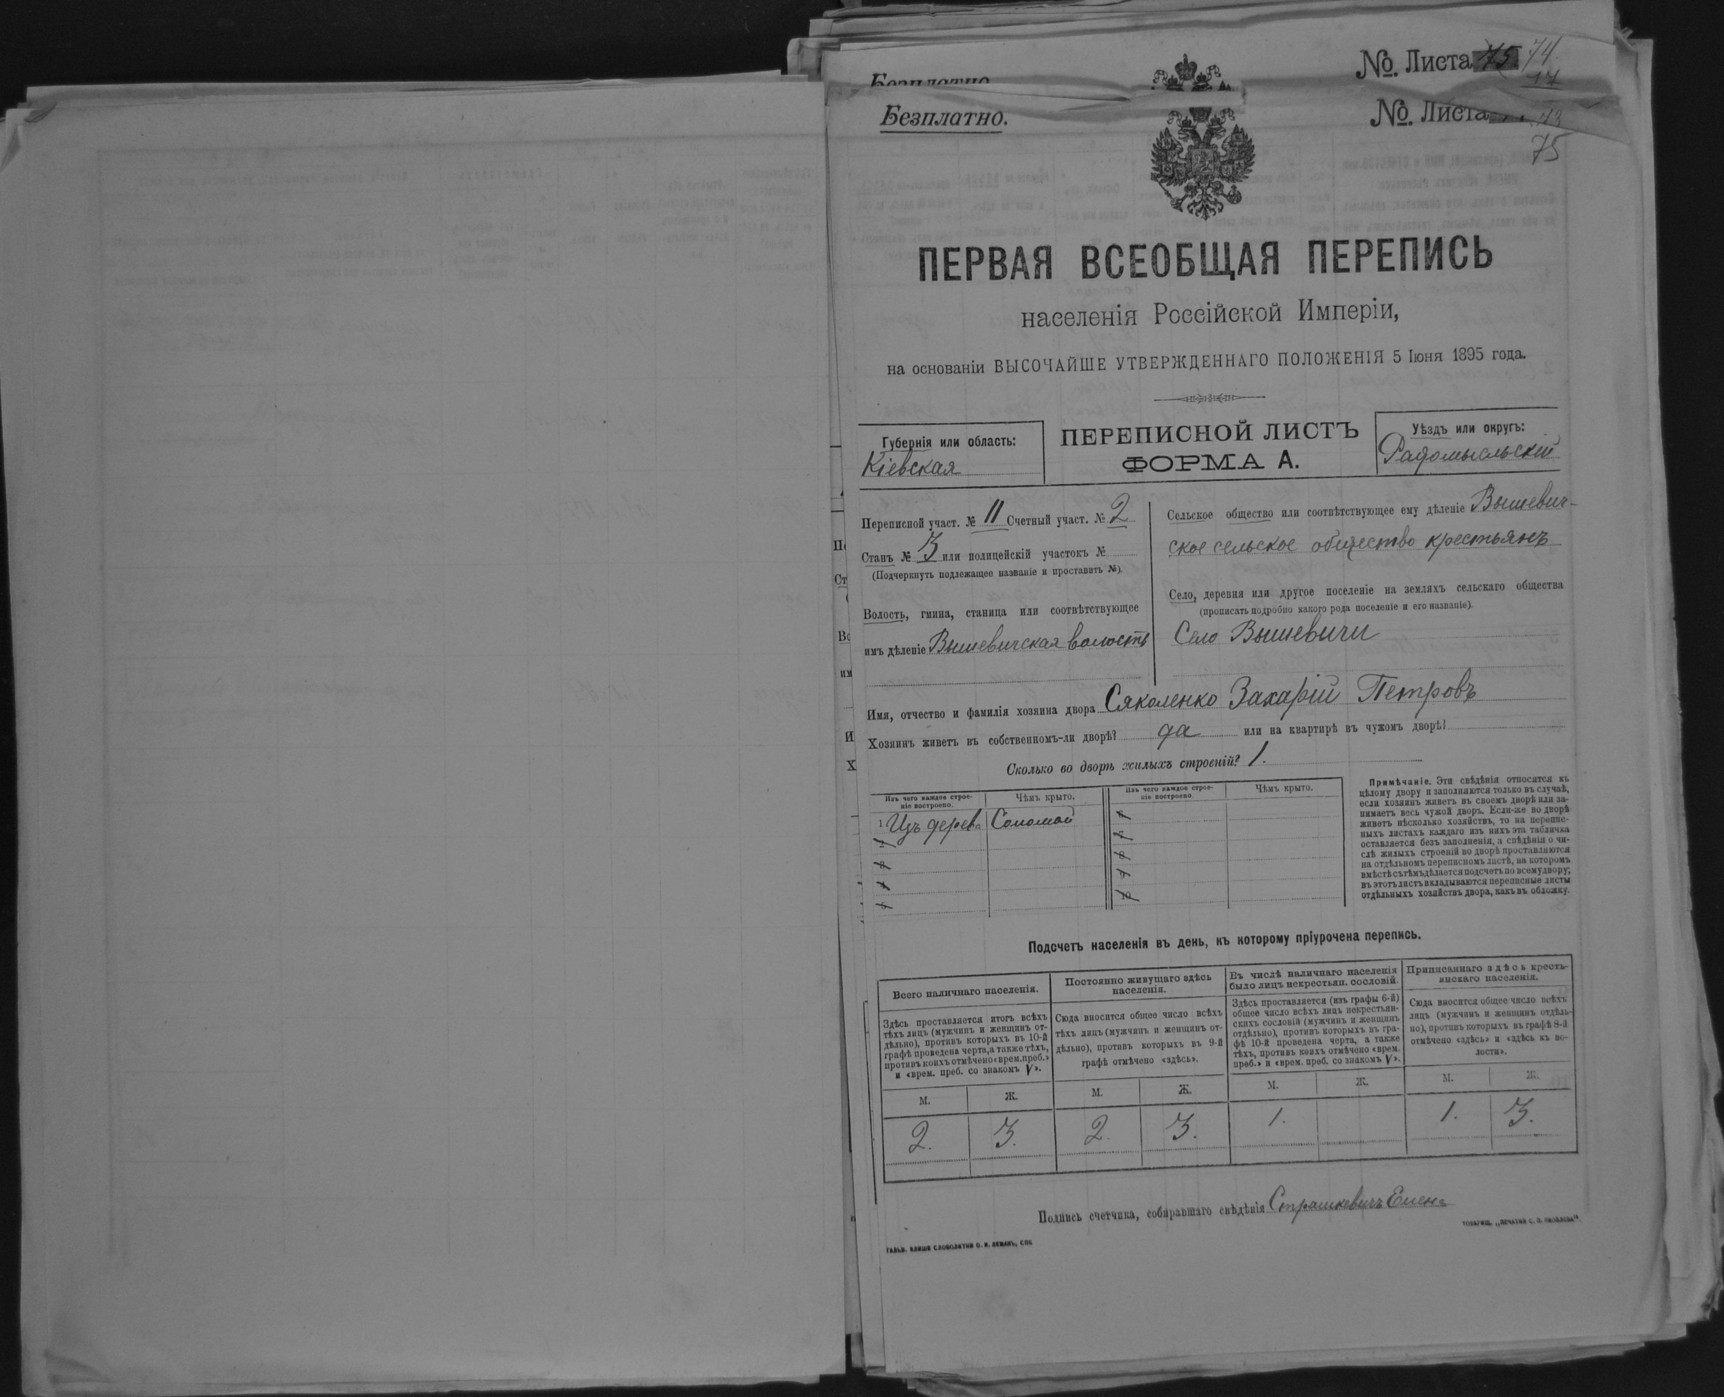 Безплатно
№. Листа 75 74
Безплатно.
№. Листа 73
75
ПЕРВАЯ ВСЕОБЩАЯ ПЕРЕПИСЬ
населенія Россійской Имперіи,
на основаніи ВЫСОЧАЙШЕ УТВЕРЖДЕННАГО ПОЛОЖЕНІЯ 5 Іюня 1895 года.
Губернія или область:
Кіевская
ПЕРЕПИСНОЙ ЛИСТЪ
ФОРМА А.
Уѣздъ или округъ:
Радомысльскій
Переписной участ. № 11 Счетный участ. № 2
Станъ № 3 или полицейскій участокъ №
(Подчеркнуть подлежащее названіе и проставить №).
Волость, гмина, станица или соотвѣтствующее
имъ дѣленіе Вышевичская волость
Сельское общество или соотвѣтствующее ему дѣленіе Вышевич-
ское сельское общество крестьянъ
Село, деревня или другое поселеніе на земляхъ сельскаго общества
(прописать подробно какого рода поселеніе и его названіе).
Село Вышевичи
Имя, отчество и фамилія хозяина двора Сяколенко Захарій Петровъ
Хозяинъ живетъ въ собственномъ-ли дворѣ? да или на квартирѣ въ чужомъ дворѣ?
Сколько во дворѣ жилыхъ строеній? 1.
Изъ чего каждое строе-
ніе построено.
Чѣмъ крыто.
Изъ чего каждое строе-
ніе построено.
Чѣмъ крыто.
1 Изъ дерева Соломой
Примѣчаніе. Эти свѣдѣнія относятся къ
цѣлому двору и заполняются только въ случаѣ,
если хозяинъ живетъ въ своемъ дворѣ или за-
нимаетъ весь чужой дворъ. Если-же во дворѣ
живетъ нѣсколько хозяйствъ, то на перепис-
ныхъ листахъ каждаго изъ нихъ эта табличка
оставляется безъ заполненія, а свѣдѣнія о чи-
слѣ жилыхъ строеній во дворѣ проставляются
на отдѣльномъ переписномъ листѣ, на которомъ
вмѣстѣ съ тѣмъ дѣлается подсчетъ по всему двору;
въ этотъ листъ вкладываются переписные листы
отдѣльныхъ хозяйствъ двора, какъ въ обложку.
Подсчетъ населенія въ день, къ которому пріурочена перепись.
Всего наличнаго населенія.
Постоянно живущаго здѣсь
населенія.
Въ числѣ наличнаго населенія
было лицъ некрестьян. сословій.
Приписаннаго здѣсь кресть-
янскаго населенія.
Здѣсь проставляется итогъ всѣхъ
тѣхъ лицъ (мужчинъ и женщинъ от-
дѣльно), противъ которыхъ въ 10-й
графѣ проведена черта, а также тѣхъ,
противъ коихъ отмѣчено «врем. преб.»
и «врем. преб. со знакомъ V».
Сюда вносится общее число всѣхъ
тѣхъ лицъ (мужчинъ и женщинъ от-
дѣльно), противъ которыхъ въ 9-й
графѣ отмѣчено «здѣсь».
Здѣсь проставляется (изъ графы 6-й)
общее число всѣхъ лицъ некрестьян-
скихъ сословій (мужчинъ и женщинъ
отдѣльно), противъ которыхъ въ гра-
фѣ 10-й проведена черта, а также
тѣхъ, противъ коихъ отмѣчено «врем.
преб.» и «врем. преб. со знакомъ V».
Сюда вносится общее число всѣхъ
лицъ (мужчинъ и женщинъ отдѣль-
но), противъ которыхъ въ графѣ 8-й
отмѣчено «здѣсь» и «здѣсь къ во-
лости».
М. Ж. М. Ж. М. Ж. М. Ж.
2. 3. 2. 3. 1. 1. 3.
Подпись счетчика, собиравшаго свѣдѣнія Страшкевичъ